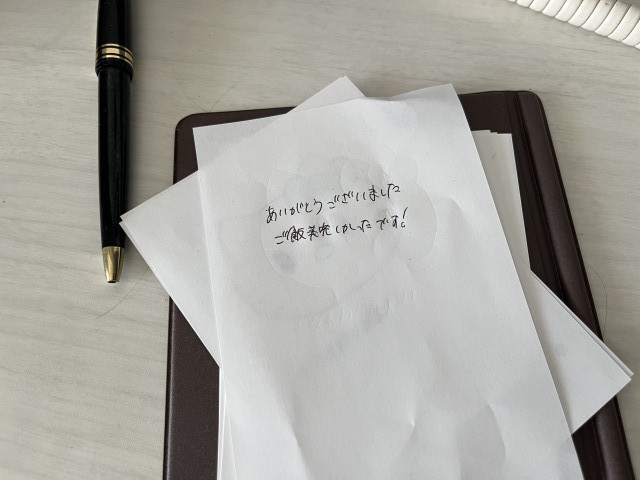 ありがとうございました
ご飯美味しかったです!